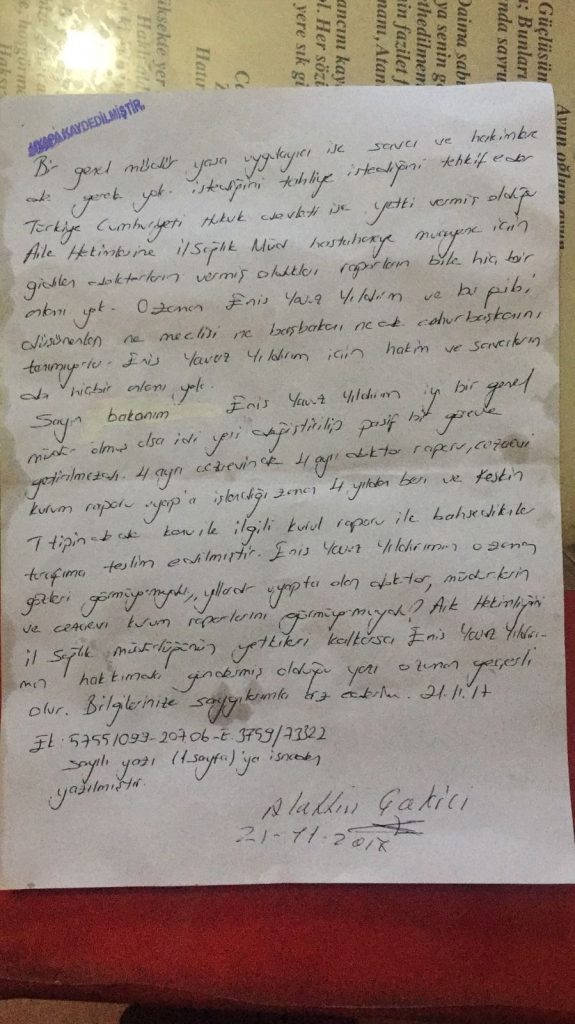 Güçlüsün
Daima sabı
ya senin g
ethedilmen
in fazilet f
nanı, Atanı
Avun oğlum avun
UYAPA KAYDEDİLMİŞTİR.
Bir genel müdür yasa uygulayıcı ise savcı ve hakimlere
de gerek yok. istediğini tahliye istediğini tevkif eder
Türkiye Cumhuriyeti Hukuk devleti ise yetki vermiş olduğu
Aile Hekimlerine il Sağlık Müd hastahaneye muayene için
gidilen doktorların vermiş oldukları raporların bile hiç bir
anlamı yok. O zaman Enis Yavuz Yıldırım ve bu gibi
düşünenler ne meclisi ne başbakanı ne de cumhurbaşkanını
tanımıyorlar. Enis Yavuz Yıldırım için hakim ve savcıların
da hiçbir anlamı yok.
Sayın bakanım Enis Yavuz Yıldırım iyi bir genel
müdür olmuş olsa idi yeri değiştirilip pasif bir göreve
getirilmezdi. 4 ayrı cezaevinde 4 ayrı doktor raporu, cezaevi
kurum raporu uyap'a işlendiği zaman 4 yıldan beri ve Keskin
T tipinde de konu ile ilgili kurul raporu ile bahsedilenler
tarafıma teslim edilmiştir. Enis Yavuz Yıldırımın o zaman
gözleri görmüyormuydu, yıllardır uyapta olan doktor, müdürlerin
ve cezaevi kurum raporlarını görmüyormuydu? Aile Hekimliğini
il sağlık müdürlüğünün yetkileri kalkarsa Enis Yavuz Yıldırı-
mın hakkımdaki göndermiş olduğu yazı o zaman geçerli
olur. Bilgilerinize saygılarımla arz ederim. 21.11.17
Ek: 57551099-207 06-E.3759/73322
sayılı yazı (1.sayfa)'ya isnaden
yazılmıştır.
Alattin Çakıcı
21-11-2017